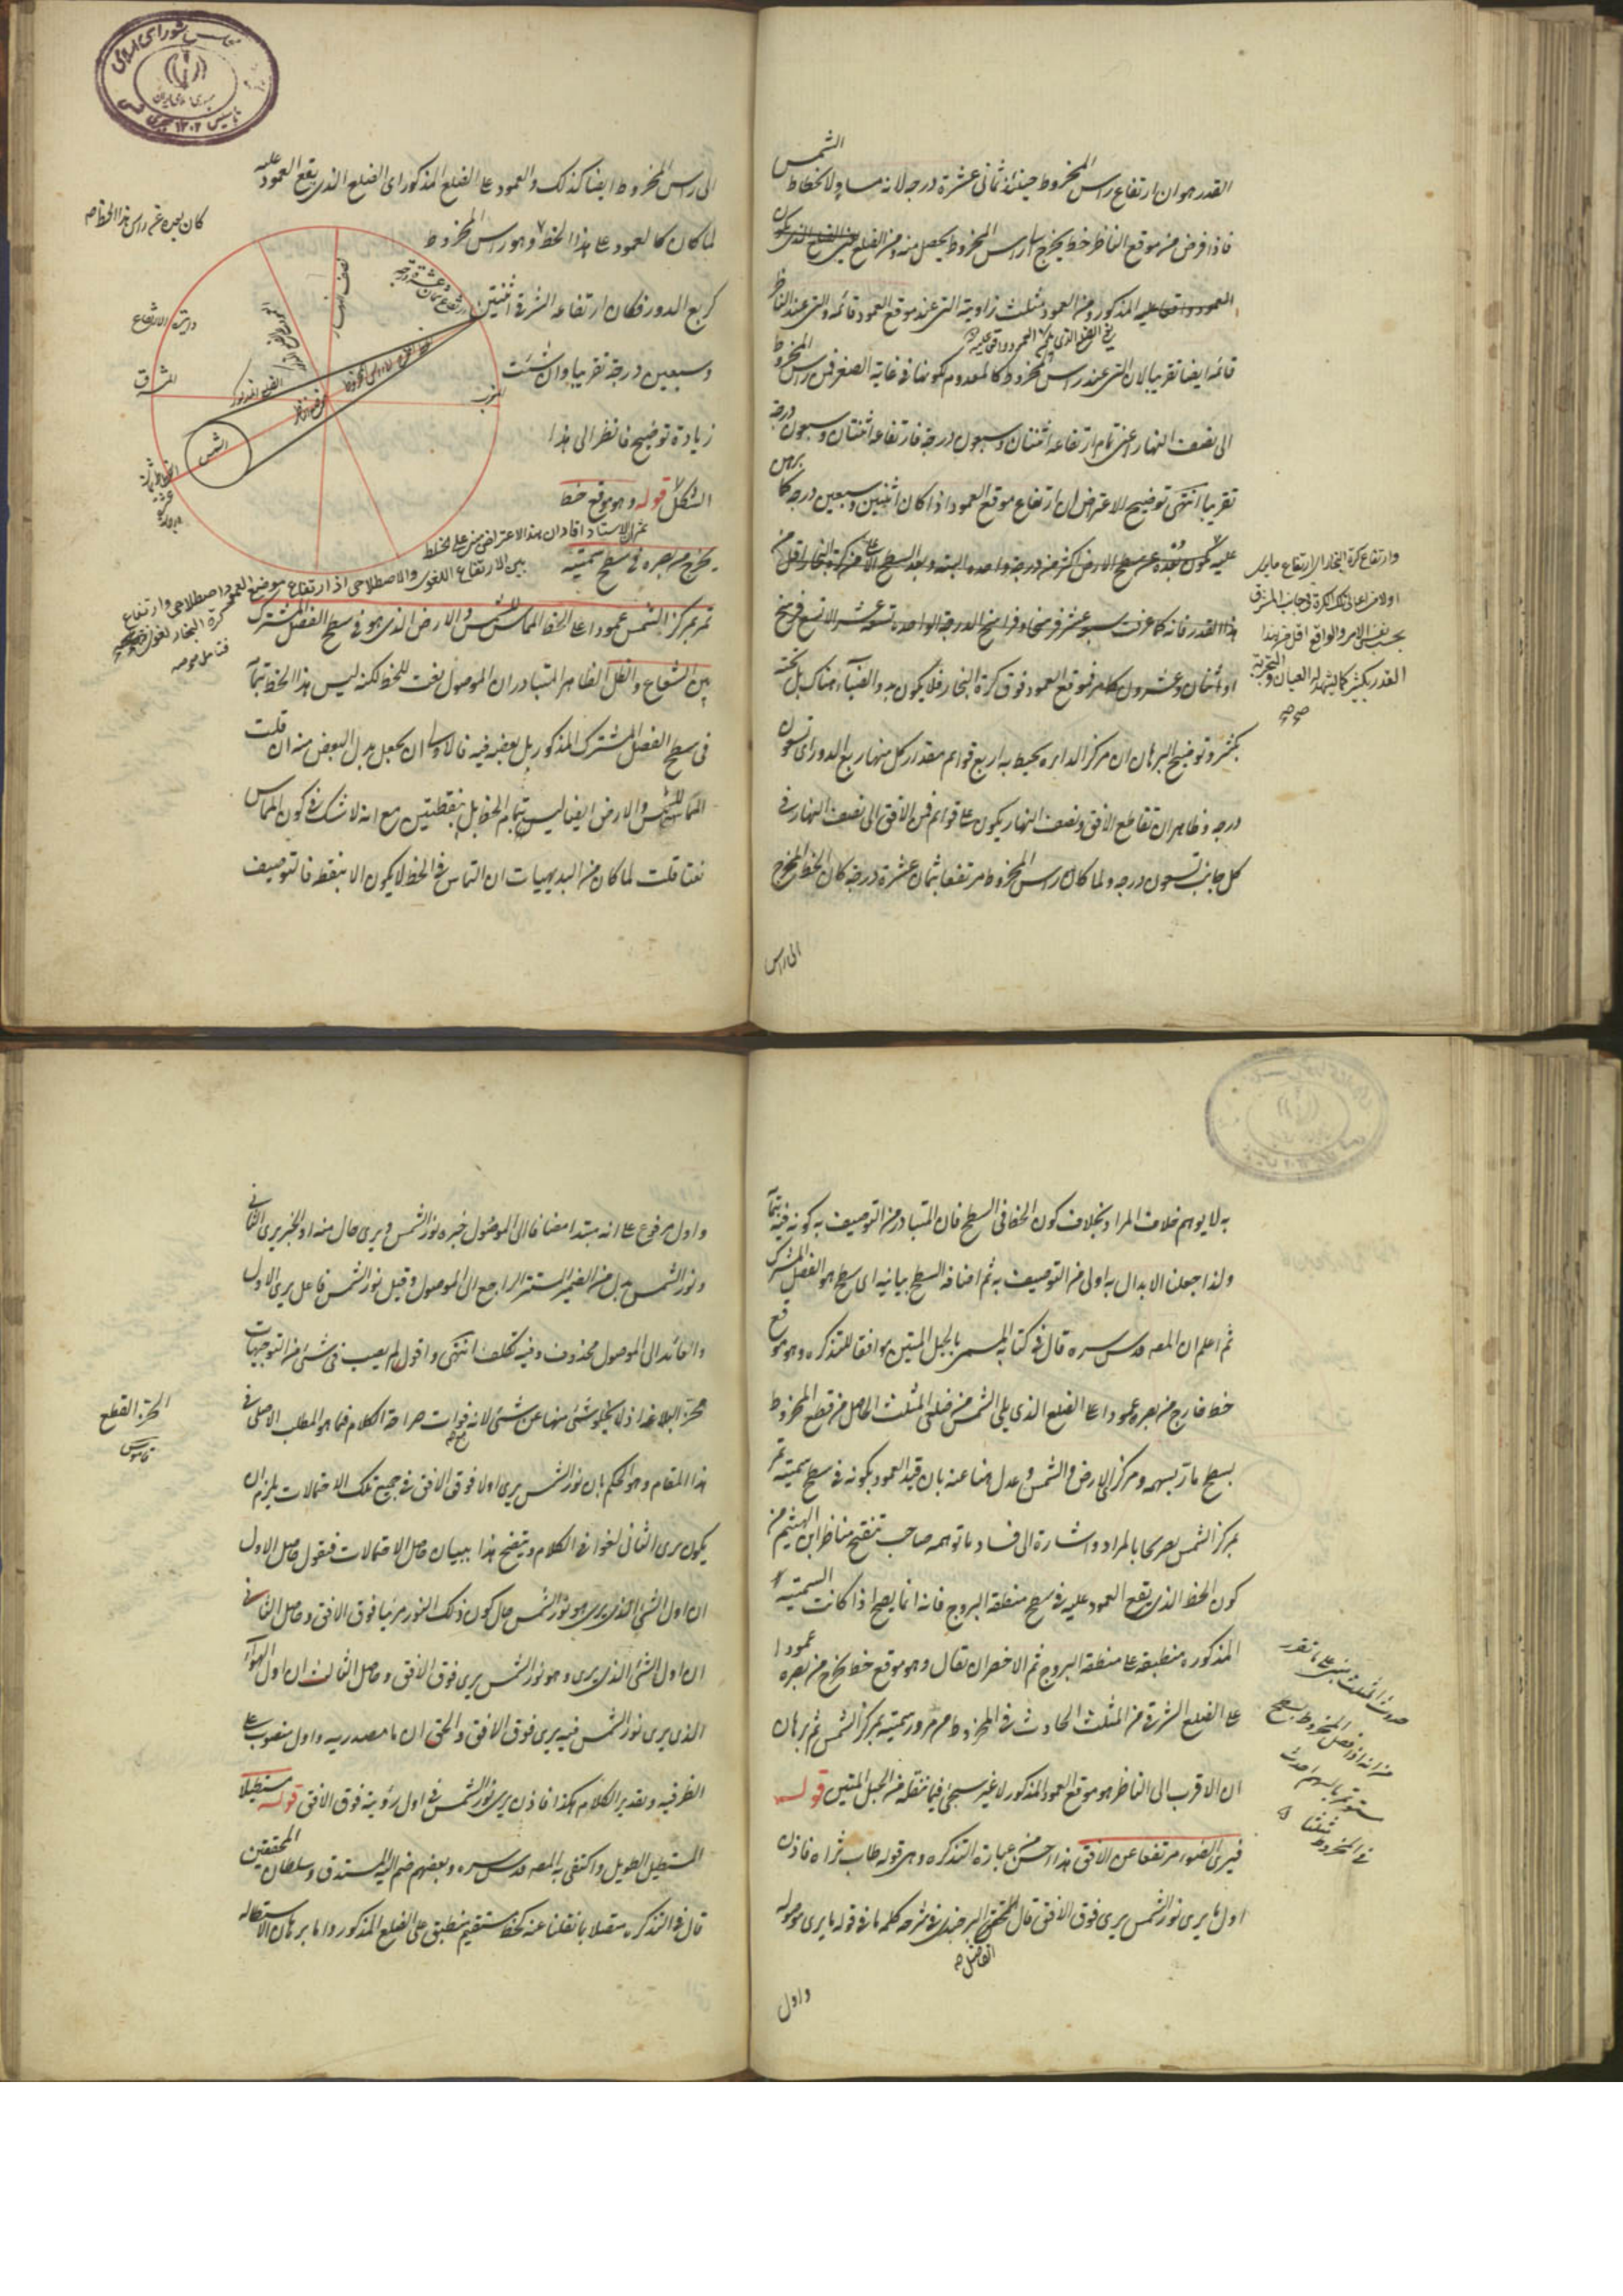 القدر هو ان ارتفاع راس المخروط حينئذ ثماني عشرة درجه لانه مساو لانحطاط الشمس
فاذا فرض من موقع الناظر خط يخرج الى راس المخروط يحصل منه ومن الضلع
المذكور ومن العمود مثلث زاويته التي عند موقع العمود قائمه والتي عند الناظر
قائمه ايضا تقريبا لان التي عند راس المخروط كالمعدوم لكونها في غاية الصغر فمن راس المخروط
الى نصف النهار اعني تمام ارتفاعه اثنتان وسبعون درجة فارتفاعه اثنتان وسبعون درجة
تقريبا انتهى توضيح الاعتراض ان ارتفاع موقع العمود اذا كان اثنين وسبعين درجه كما برهن
عليه يكون بعده عن سطح الارض اكثر من درجة واحده البته وبعد السطح الاعلى من كرة البخار اقل من
هذا القدر فانه كما عرفت سبعة عشر فرسخا وفراسخ الدرجة الواحده تسعة عشر الا تسع فرسخ
او اثنان وعشرون كامر فموقع العمود فوق كرة البخار فلا يكون مبدء الضياء هناك بل تحته
بكثير وتوضيح البرهان ان مركز الدايره يحيط به اربع قوائم مقدار كل منها ربع الدور اى تسعون
درجه وظاهر ان تقاطع الافق ونصف النهار يكون على قوائم فمن الافق الى نصف النهار في
كل جانب تسعون درجه ولما كان راس المخروط مرتفعا بثمان عشرة درجة كان الخط المخرج
الى راس
وارتفاع كرة البخار الارتفاع ما يرى
اولا من اعالي تلك الكرة في جانب المشرق
بحسب نفس الامر والواقع اقل من هذا
القدر بكثير كما يشهد له العيان والتجربة
الى راس المخروط ايضا كذلك والعمود على الضلع المذكور اى الضلع الذى يقع العمود عليه
لما كان كالعمود على هذا الخط وهو راس المخروط
كان بعده عن راس هذا الخط
كربع الدور فكان ارتفاعه الشرقي اثنتين
وسبعين درجة تقريبا وان شئت
زيادة توضيح فانظر الى هذا
الشكل قوله وهو موقع خط
يخرج من بصره في سطح سمتيه
دائرة الارتفاع
المشرق
المغرب
الشمس
نصف النهار
الضلع المذكور
ثم ان الاستاد افاد ان هذا الاعتراض مبنى على الخلط
بين الارتفاع اللغوى والاصطلاحى اذ ارتفاع موضع العمود اصطلاحى وارتفاع
كرة البخار لغوى
تمر بمركز الشمس عمودا على الخط المماس للشمس والارض الذى هو في سطح الفصل المشترك
بين الشعاع والظل الظاهر المتبادر ان الموصول نعت للخط لكنه ليس هذا الخط بتمامه
في سطح الفصل المشترك المذكور بل بعضه فيه فالاولى ان يجعل بدل البعض منه ان قلت
المماس للشمس والارض ايضا ليس بتمام الخط بل بنقطتين مع انه لا شك في كون المماس
نعتا قلت لما كان من البديهيات ان التماس في الخط لا يكون الا بنقطه فالتوصيف
به لا يوهم خلاف المراد بخلاف كون الخط في السطح فان المتبادر من التوصيف به كونه فيه بتمامه
ولذا جعلنا الابدال به اولى من التوصيف به ثم اضافة السطح بيانيه اى سطح هو الفصل المشترك
ثم اعلم ان المصه قدس سره قال في كتابه المسمى بالحبل المتين موافقا للتذكره وهو موقع
خط خارج من بصره عمودا على الضلع الذى يلى الشمس من ضلعى المثلث الحاصل من قطع المخروط
بسطح مار بسهمه ومركزى الارض والشمس وعدل هنا عنه بان قيد العمود بكونه في سطح سمتيه تمر
بمركز الشمس تصريحا بالمراد واشارة الى فساد ما توهمه صاحب تنقيح مناظر ابن الهيثم من
كون الخط الذى يقع العمود عليه في سطح منطقة البروج فانه انما يصح اذا كانت السمتيه
المذكوره منطبقة على منطقة البروج ثم الاخصر ان يقال وهو موقع خط يخرج من بصره عمودا
على الضلع الشرقي من المثلث الحادث في المخروط من مرور سمتيه بمركز الشمس ثم برهان
ان الاقرب الى الناظر هو موقع العمود المذكور لا غير سيجئ فيما ننقله من الحبل المتين قوله
فيرى الضوء مرتفعا عن الافق هذا احسن من عبارة التذكره وهى قوله طاب ثراه فاذن
اول ما يرى نور الشمس يرى فوق الافق قال المحقق البرجندى في شرحه كلمه ما في قوله ما يرى موصوله
الفاضل
واول
واول مرفوع على انه مبتدا مضافا الى الموصول خبره نور الشمس ويرى حال منه او الخبر يرى الثاني
ونور الشمس بدل من الضمير المستتر الراجع الى الموصول وقيل نور الشمس فاعل يرى الاول
والعائد الى الموصول محذوف وفيه تكلف انتهى واقول لم يصب في شئ من التوجيهات
محز البلاغة اذ لا يخلو شئ منها عن شئ لانه فوات صراحة الكلام فيما هو المطلب الاصلى في
هذا المقام وهو الحكم بان نور الشمس يرى اولا فوق الافق في جميع تلك الاحتمالات يلزم ان
يكون يرى الثاني لغوا في الكلام ويتضح هذا ببيان حاصل الاحتمالات فنقول حاصل الاول
ان اول الشئ الذى يرى هو نور الشمس حال كون ذلك النور مرئيا فوق الافق وحاصل الثاني
ان اول الشئ الذى يرى وهو نور الشمس يرى فوق الافق وحاصل الثالث ان اول الهواء
الذى يرى نور الشمس فيه يرى فوق الافق والحق ان ما مصدريه واول منصوب على
الظرفيه وتقدير الكلام هكذا فاذن يرى نور الشمس في اول رؤيته فوق الافق قوله مستطيلا
المستطيل الطويل واكتفى به المصه قدس سره وبعضهم ضم اليه المستدق وسلطان المحققين
قال في التذكره متصلا بما نقلنا عنه كخط مستقيم منطبق على الضلع المذكور واما برهان الاستطاله
المحز القطع
قاموس